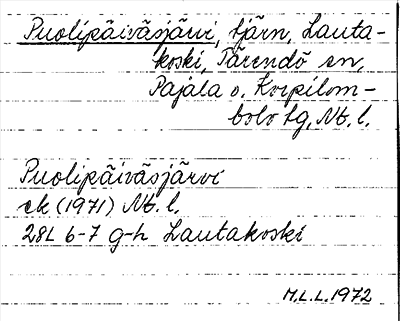 Puolipäiväsjärvi, tjärn, Lauta-
koski, Tärendö sn,
Pajala o. Korpilom-
bolo tg, Nb. l.
Puolipäiväsjärvi
ek (1971) Nb. l.
28L 6-7 g-h Lautakoski
M.L.L. 1972